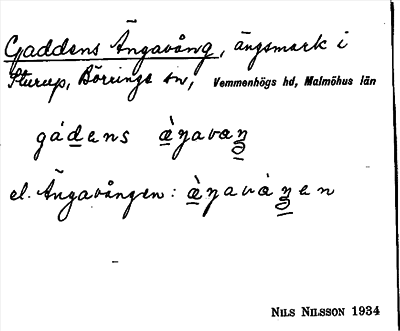 Gaddens Ängavång, ängsmark i
Sturup, Börringe sn, Vemmenhögs hd, Malmöhus län
gádens
el. Ängavången:
NILS NILSSON 1934